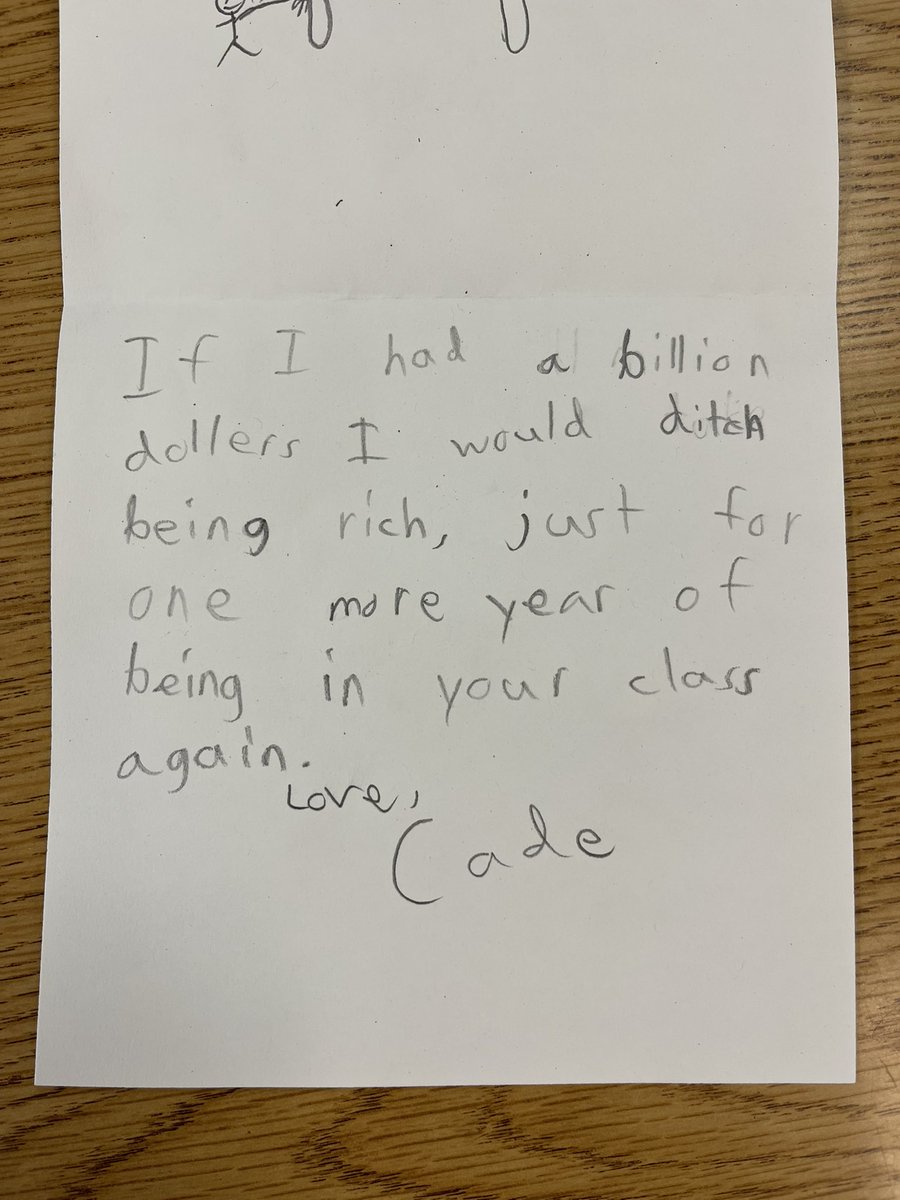 If I had a billion
dollers I would ditch
being rich, just for
one more year of
being in your class
again.
Love,
Cade